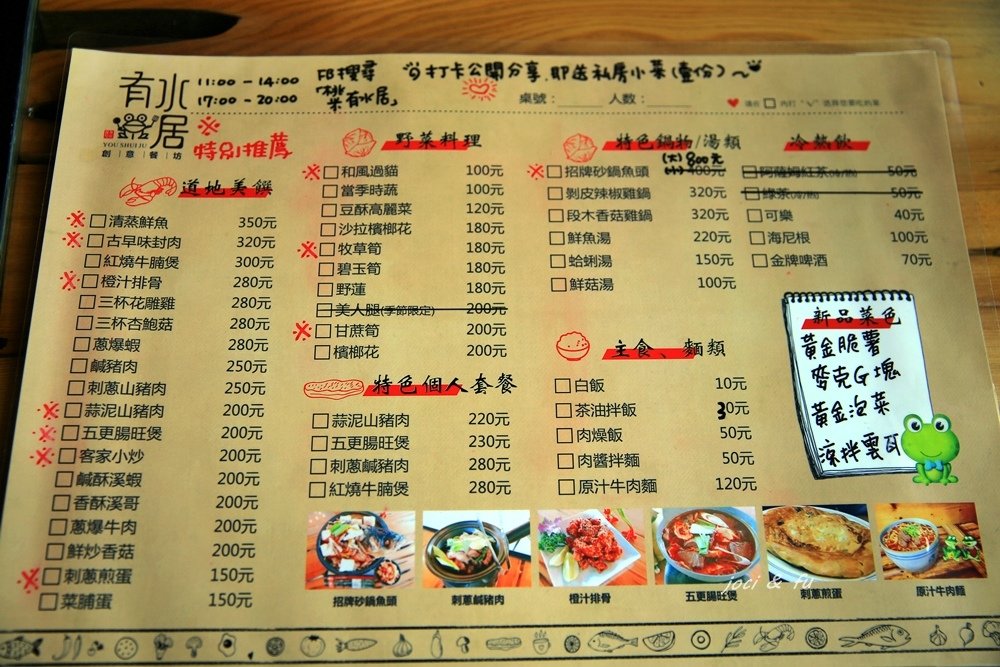 有水居
YOU SHUI JU
創 | 意 | 餐 | 坊
11:00 - 14:00
17:00 - 20:00
FB搜尋
「樂有水居」
打卡公開分享,即送私房小菜(壹份)~
桌號:______ 人數:______
※
特別推薦
道地美饌
※ □清蒸鮮魚 350元
※ □古早味封肉 320元
□紅燒牛腩煲 300元
※ □橙汁排骨 280元
□三杯花雕雞 280元
□三杯杏鮑菇 280元
□蔥爆蝦 280元
□鹹豬肉 250元
□刺蔥山豬肉 250元
※ □蒜泥山豬肉 200元
※ □五更腸旺煲 200元
※ □客家小炒 200元
□鹹酥溪蝦 200元
□香酥溪哥 200元
□蔥爆牛肉 200元
□鮮炒香菇 200元
※ □刺蔥煎蛋 150元
□菜脯蛋 150元
野菜料理
※ □和風過貓 100元
□當季時蔬 100元
□豆酥高麗菜 120元
□沙拉檳榔花 180元
※ □牧草筍 180元
□碧玉筍 180元
□野蓮 180元
□美人腿(季節限定) 200元
※ □甘蔗筍 200元
□檳榔花 200元
特色個人套餐
□蒜泥山豬肉 220元
□五更腸旺煲 230元
□刺蔥鹹豬肉 280元
□紅燒牛腩煲 280元
特色鍋物/湯類
(大) 800元
※ □招牌砂鍋魚頭 (小)400元
□剝皮辣椒雞鍋 320元
□段木香菇雞鍋 320元
□鮮魚湯 220元
□蛤蜊湯 150元
□鮮菇湯 100元
主食、麵類
□白飯 10元
□茶油拌飯 30元
□肉燥飯 50元
□肉醬拌麵 50元
□原汁牛肉麵 120元
冷熱飲
□阿薩姆紅茶(冷/熱) 50元
□綠茶(冷/熱) 50元
□可樂 40元
□海尼根 100元
□金牌啤酒 70元
新品菜色
黃金脆薯
麥克G塊
黃金泡菜
涼拌雲耳
招牌砂鍋魚頭
刺蔥鹹豬肉
橙汁排骨
五更腸旺煲
刺蔥煎蛋
原汁牛肉麵
joci & fu